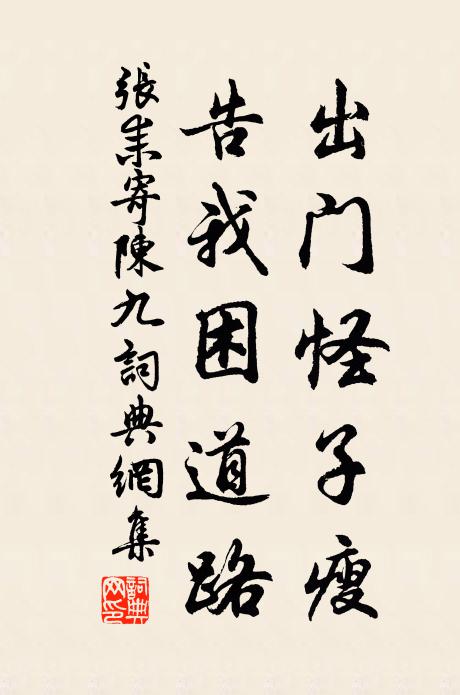 出门怪子瘦
告我困道路
張耒寄陳九詞典網集
詞典网印